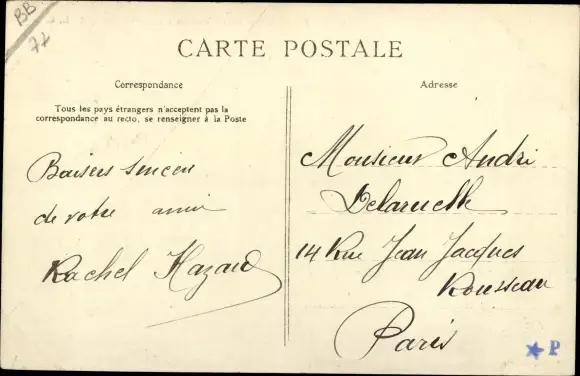 BB
71
CARTE POSTALE
Correspondance
Tous les pays étrangers n'acceptent pas la
correspondance au recto, se renseigner à la Poste
Baisers sincères
de votre amie
Rachel Hazard
Adresse
Monsieur André
Delaruelle
14 Rue Jean Jacques
Rousseau
Paris
★ P